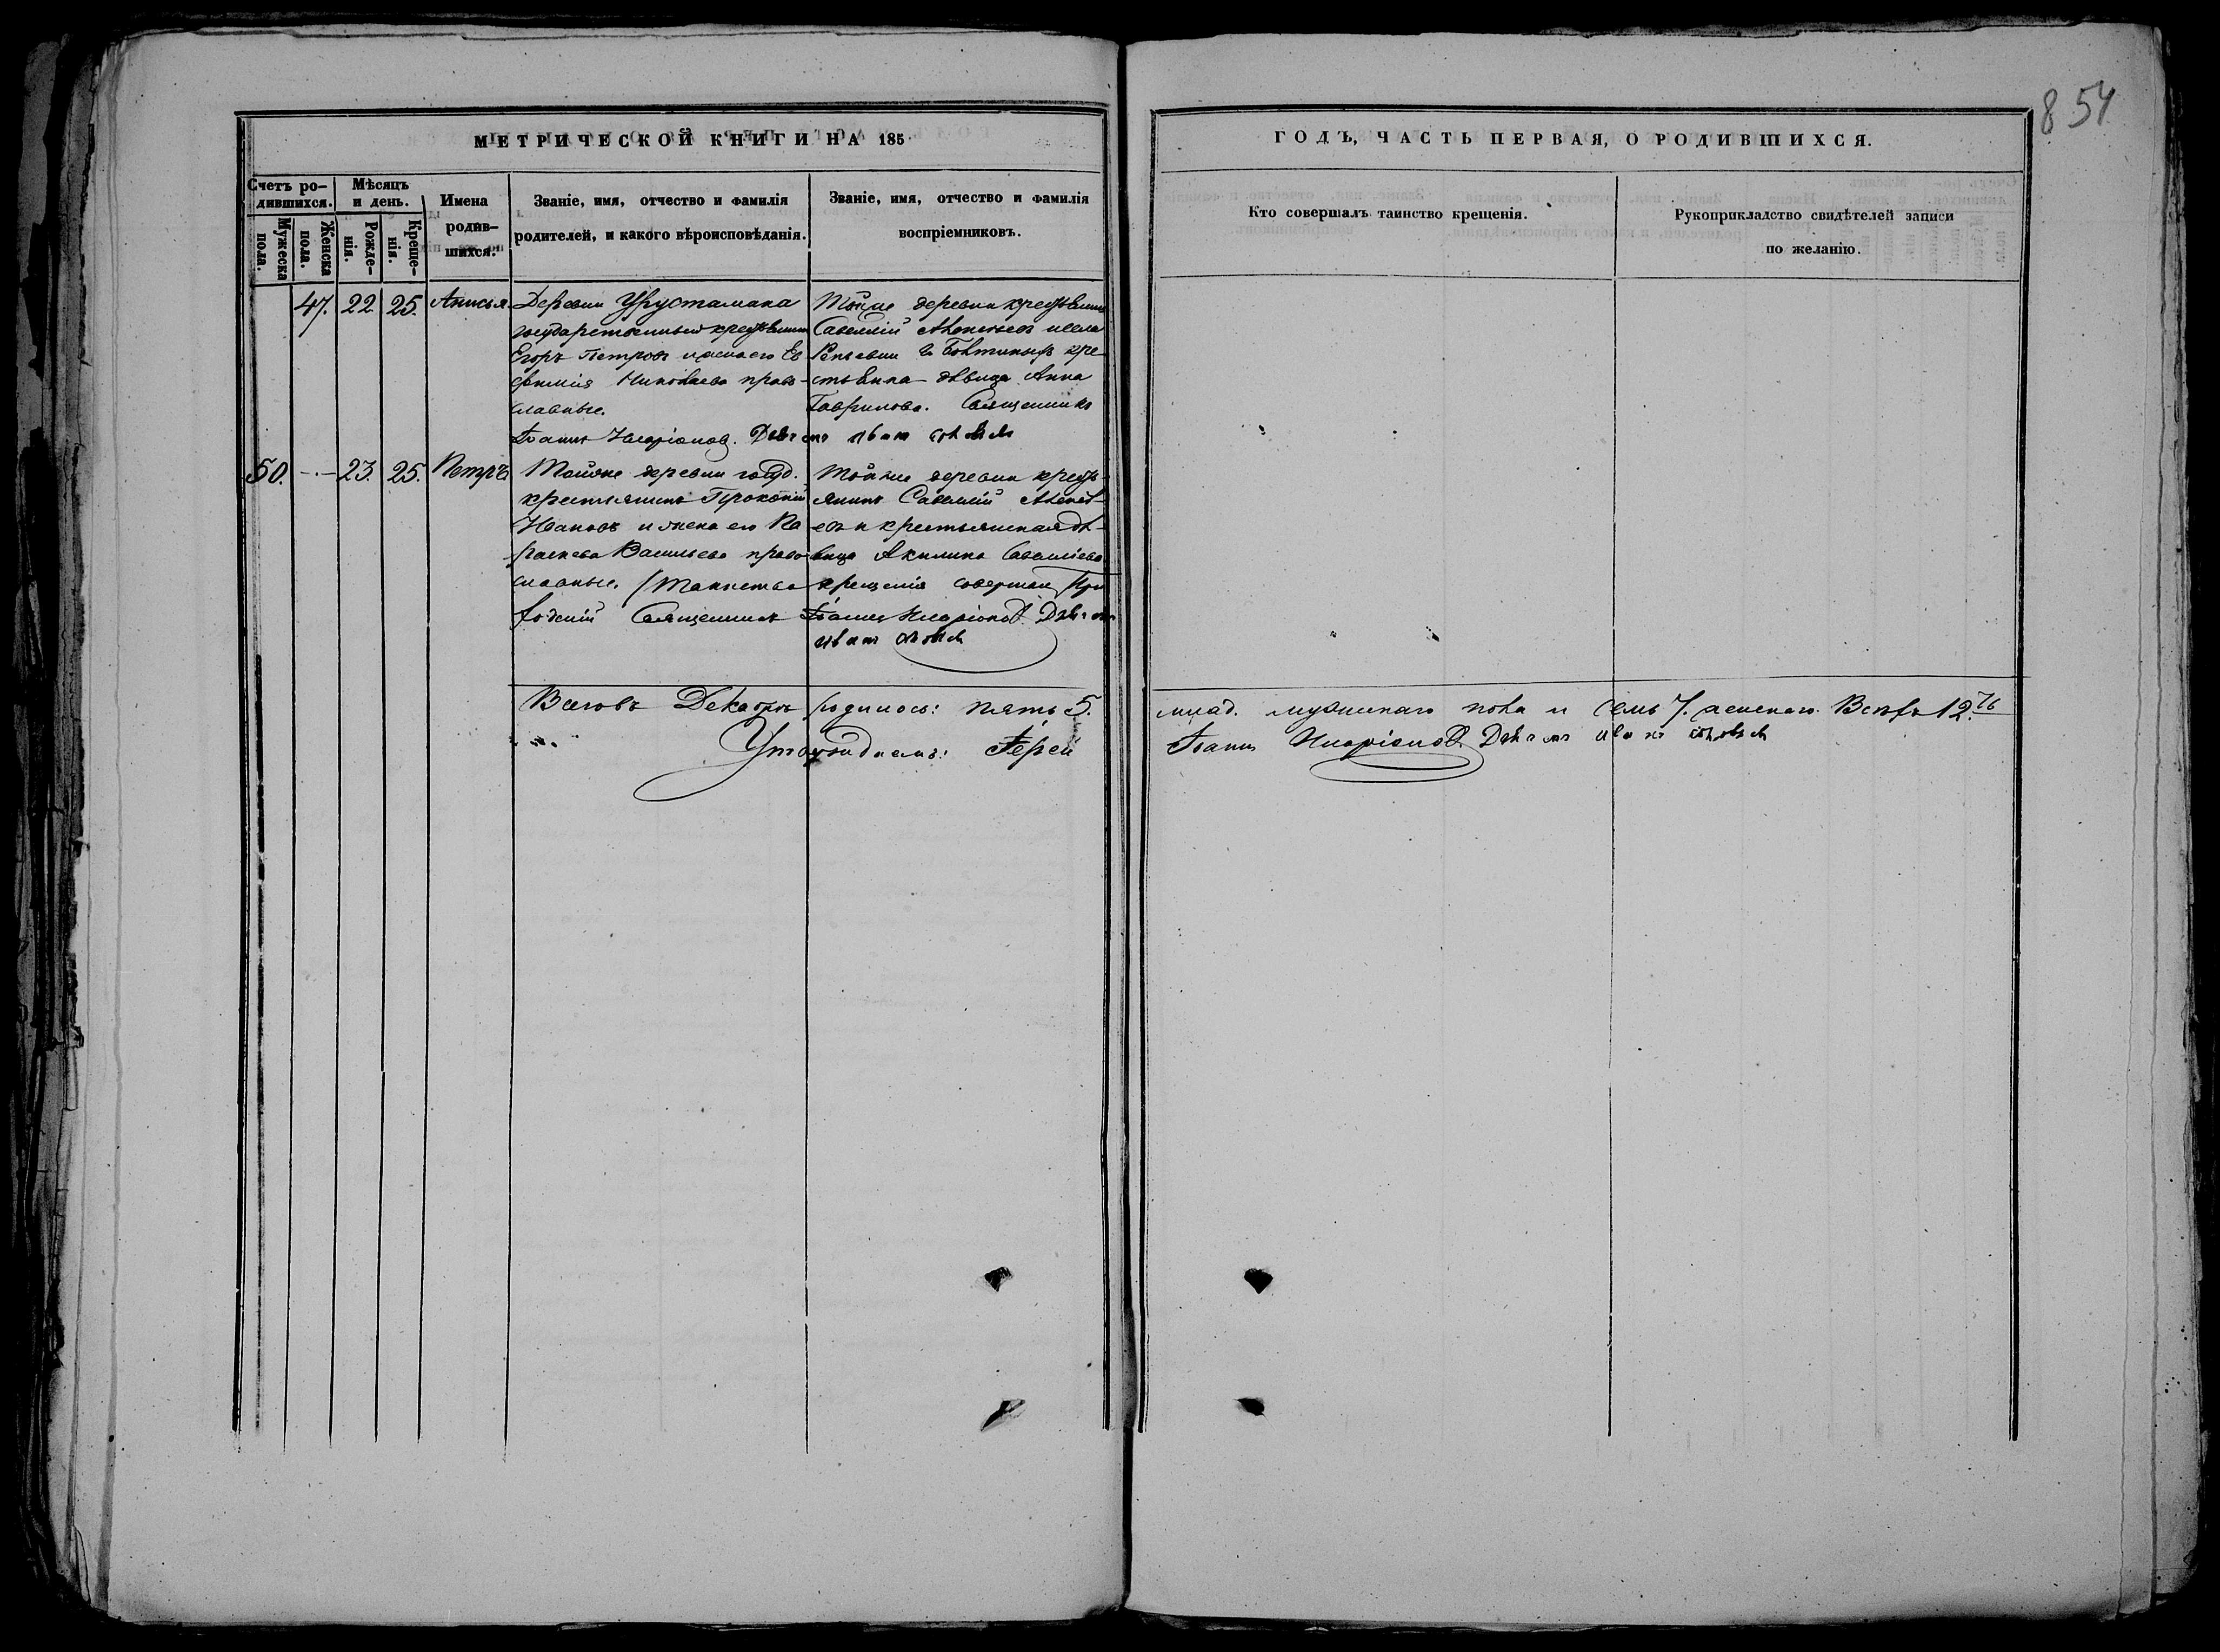 854
МЕТРИЧЕСКОЙ КНИГИ НА 185
ГОДЪ, ЧАСТЬ ПЕРВАЯ, О РОДИВШИХСЯ.
Счетъ ро-
дившихся.
Мужеска
пола.
Женска
пола.
Мѣсяцъ
и день.
Рожде-
нія.
Креще-
нія.
Имена
родив-
шихся.
Званіе, имя, отчество и фамилія
родителей, и какого вѣроисповѣданія.
Званіе, имя, отчество и фамилія
воспріемниковъ.
Кто совершалъ таинство крещенія.
Рукоприкладство свидѣтелей записи
по желанію.
47. 22. 25. Анисья.
Деревни Урустамака
государственный крестьянинъ
Егоръ Петровъ и жена его Ев
фимія Николаева право-
славные.
Тойже деревни крестьянинъ
Савелій и села
кре-
стьянка дѣвица Анна
Гаврилова. Священникъ
Іоаннъ Иларіоновъ.
50. 23. 25. Петръ
Тойже деревни госуд.
крестьянинъ Прокопій
Ивановъ и жена его Па
раскева Васильева право
славные. Таинство
Тойже деревни кресть-
янинъ Савелій
евъ и крестьянская дѣ-
вица Акилина Савеліева
крещенія совершалъ При
ходскій Священникъ Іоаннъ Иларіоновъ
Всего въ Декабрѣ родилось: пять 5.
млад. мужескаго пола и семь 7. женскаго. Всѣхъ 12.ть
Утверждаемъ: Іерей
Іоаннъ Иларіоновъ